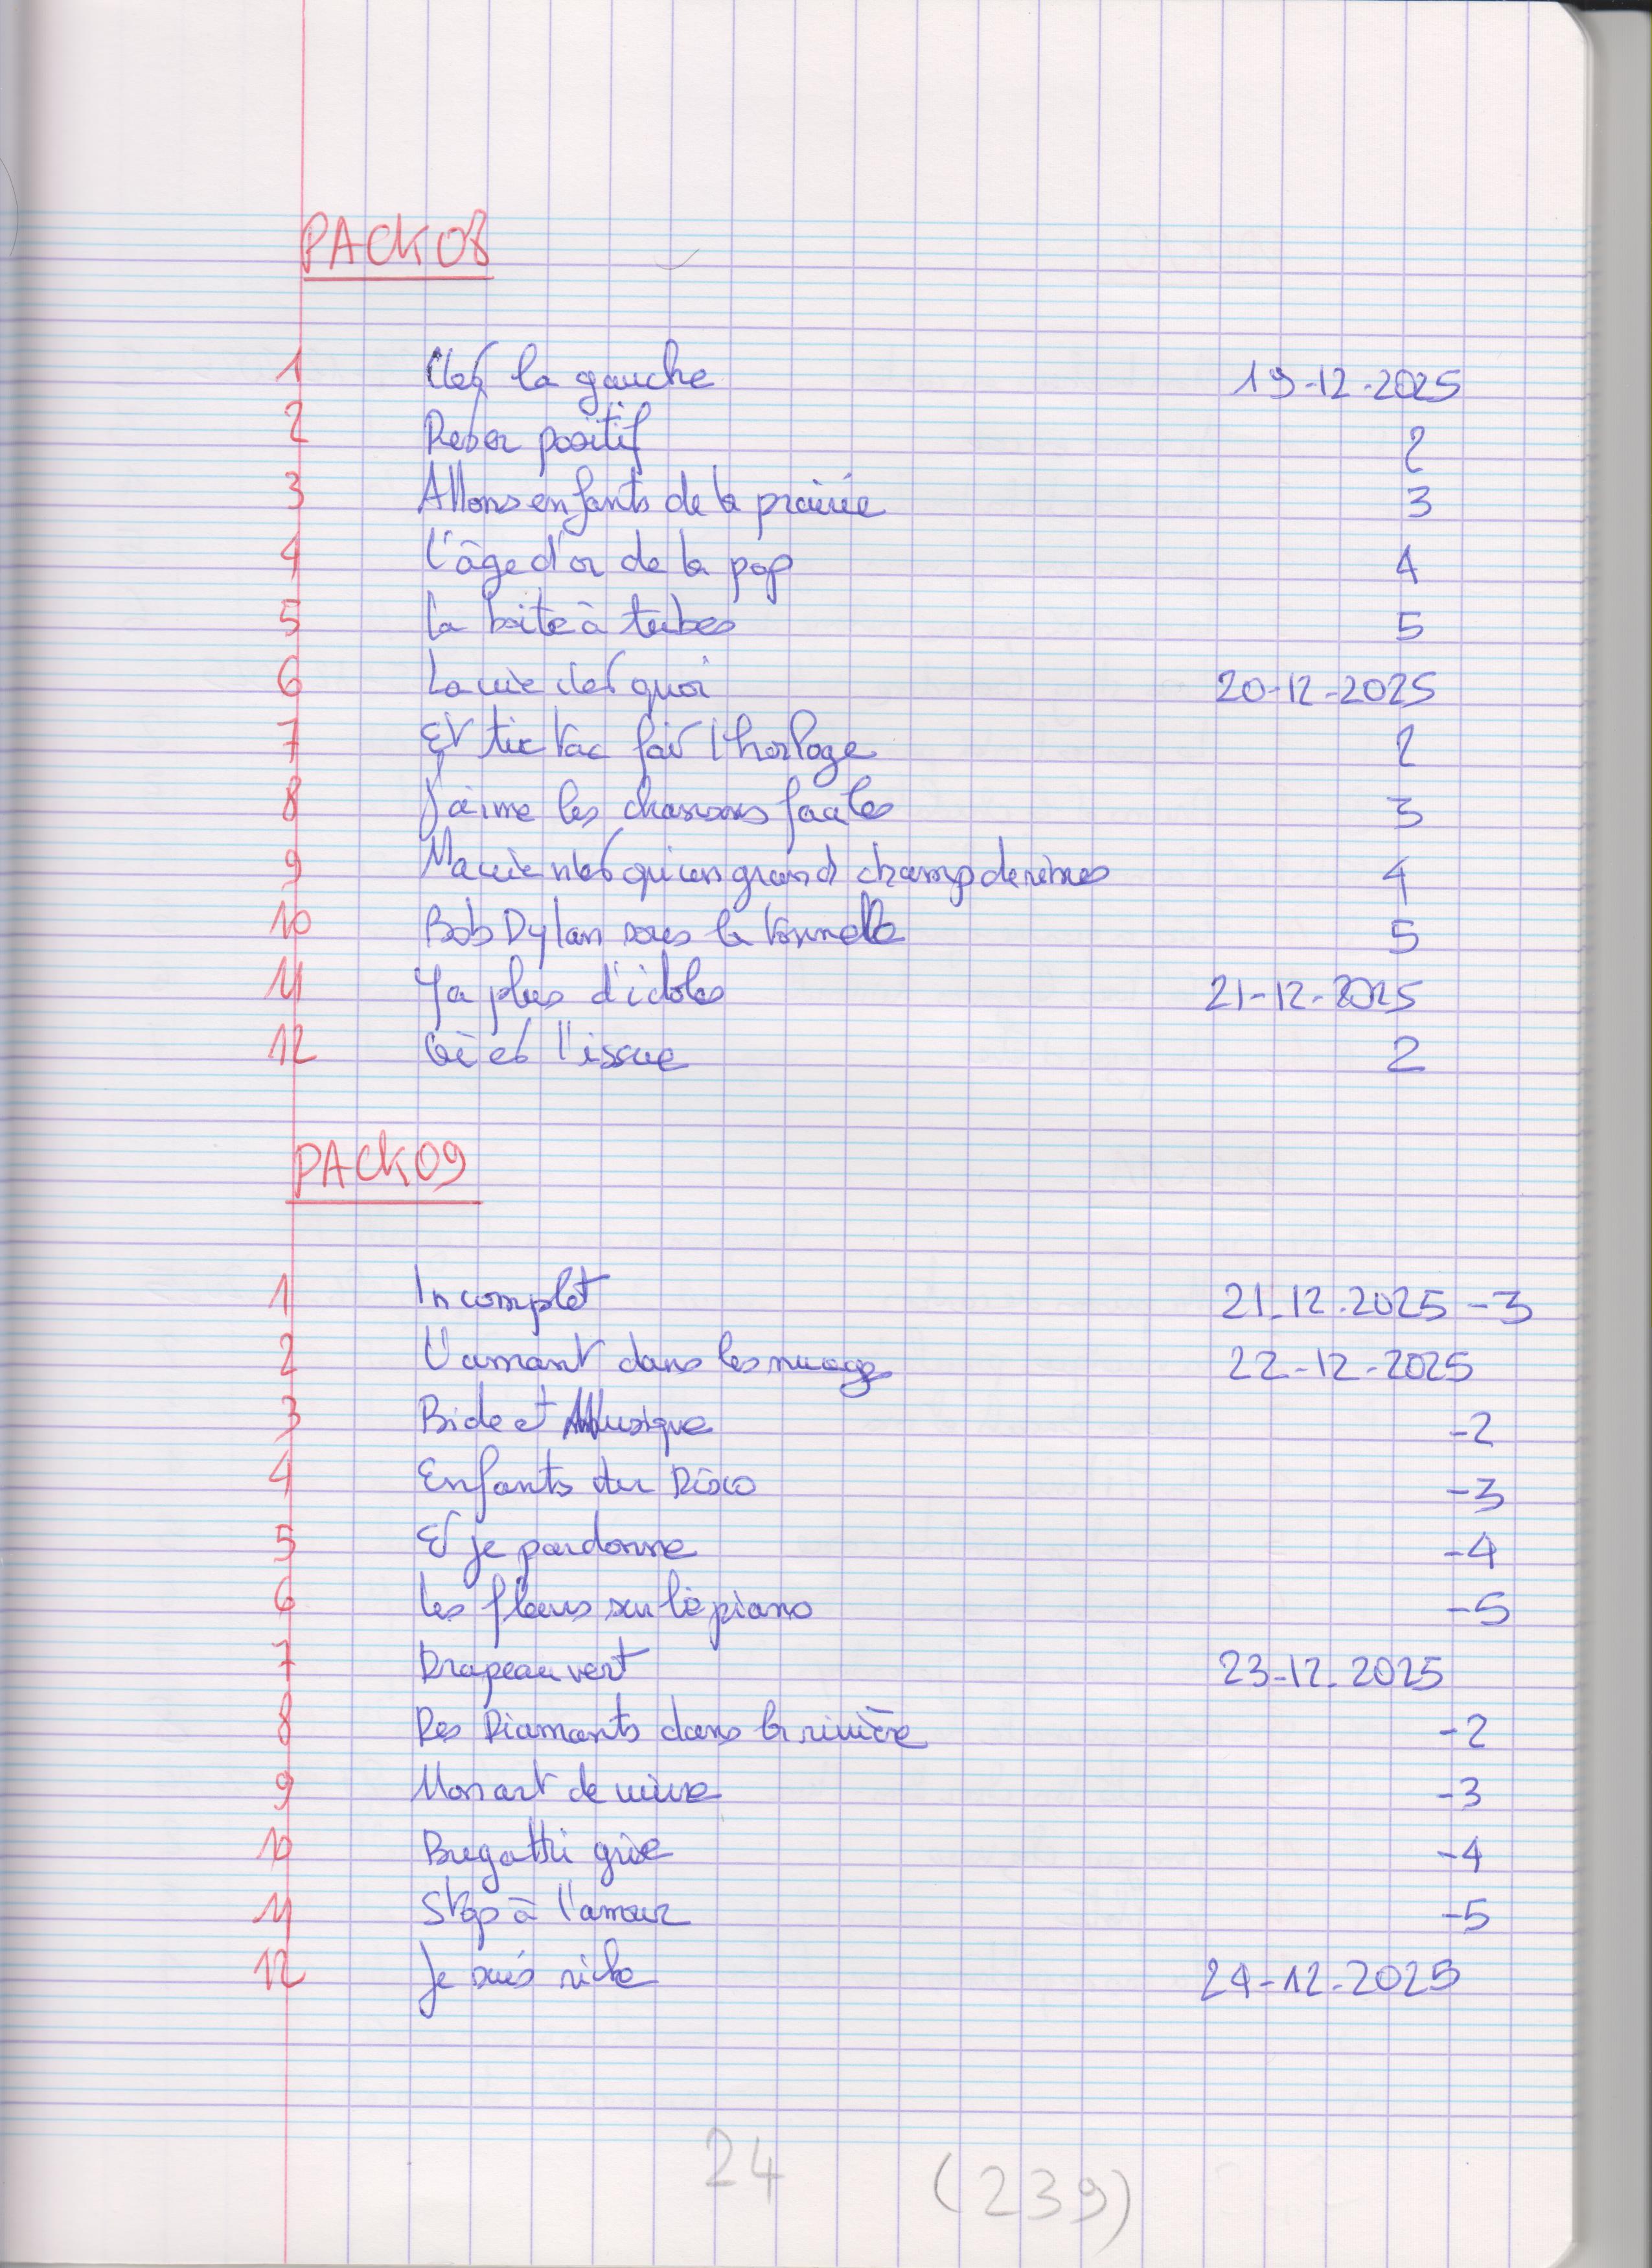 PACK08
1 C'est la gauche 19-12-2025
2 Rester positif 2
3 Allons enfants de la prairie 3
4 L'âge d'or de la pop 4
5 La boite à tubes 5
6 La vie c'est quoi 20-12-2025
7 Et tic tac fait l'horloge 2
8 J'aime les chansons faciles 3
9 Ma vie n'est qu'un grand champ de ruines 4
10 Bob Dylan sous la tonnelle 5
11 Ya plus d'idoles 21-12-2025
12 Où est l'issue 2
PACK09
1 Incomplet 21.12.2025 -3
2 L'amant dans les nuages 22-12-2025
3 Bide et Musique -2
4 Enfants du Disco -3
5 Et je pardonne -4
6 Les fleurs sur le piano -5
7 Drapeau vert 23-12.2025
8 Des Diamants dans la rivière -2
9 Mon art de vivre -3
10 Bugatti grise -4
11 Stop à l'amour -5
12 Je suis riche 24-12-2025
24 (239)